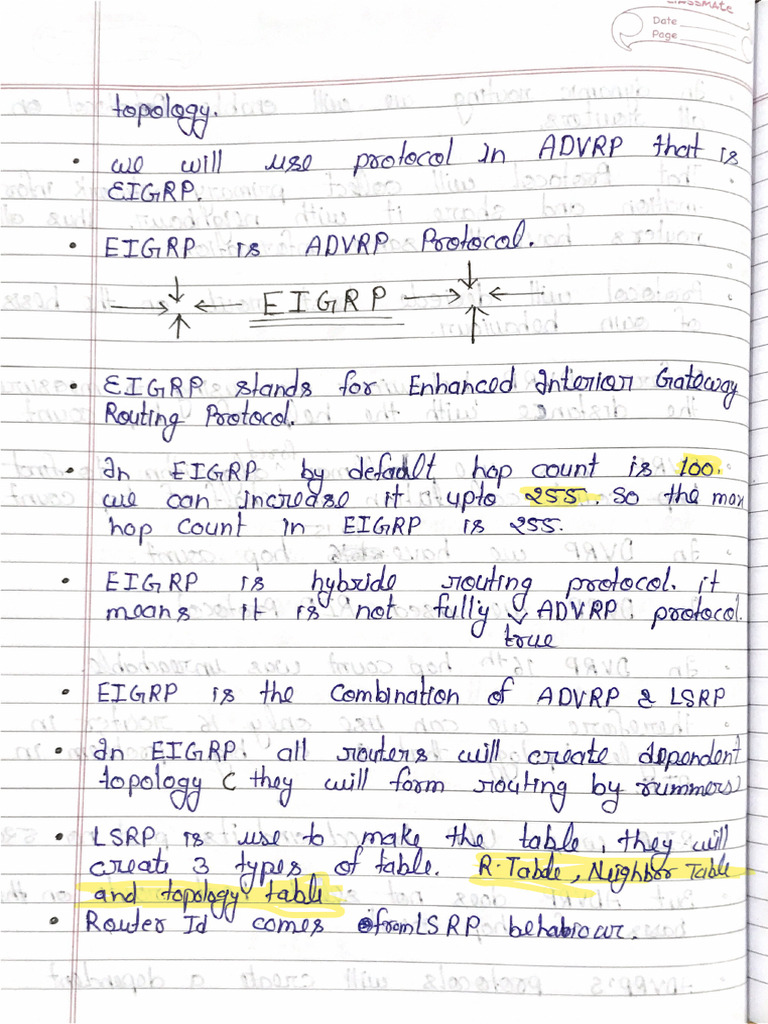 classmate
Date
Page
topology.
• we will use protocol in ADVRP that is
EIGRP.
• EIGRP is ADVRP Protocol.
EIGRP
• EIGRP stands for Enhanced Interior Gateway
Routing Protocol.
• In EIGRP by default hop count is 100.
we can increase it upto 255. So the max
hop count in EIGRP is 255.
• EIGRP is hybride routing protocol. it
means it is not fully ADVRP. protocol.
true
• EIGRP is the Combination of ADVRP & LSRP
• In EIGRP. all routers will create dependent
topology ( they will form routing by rummers)
• LSRP is use to make the table, they will
create 3 types of table. R.Table, Neighbor Table
and topology table
• Router Id comes from LSRP behabiour.